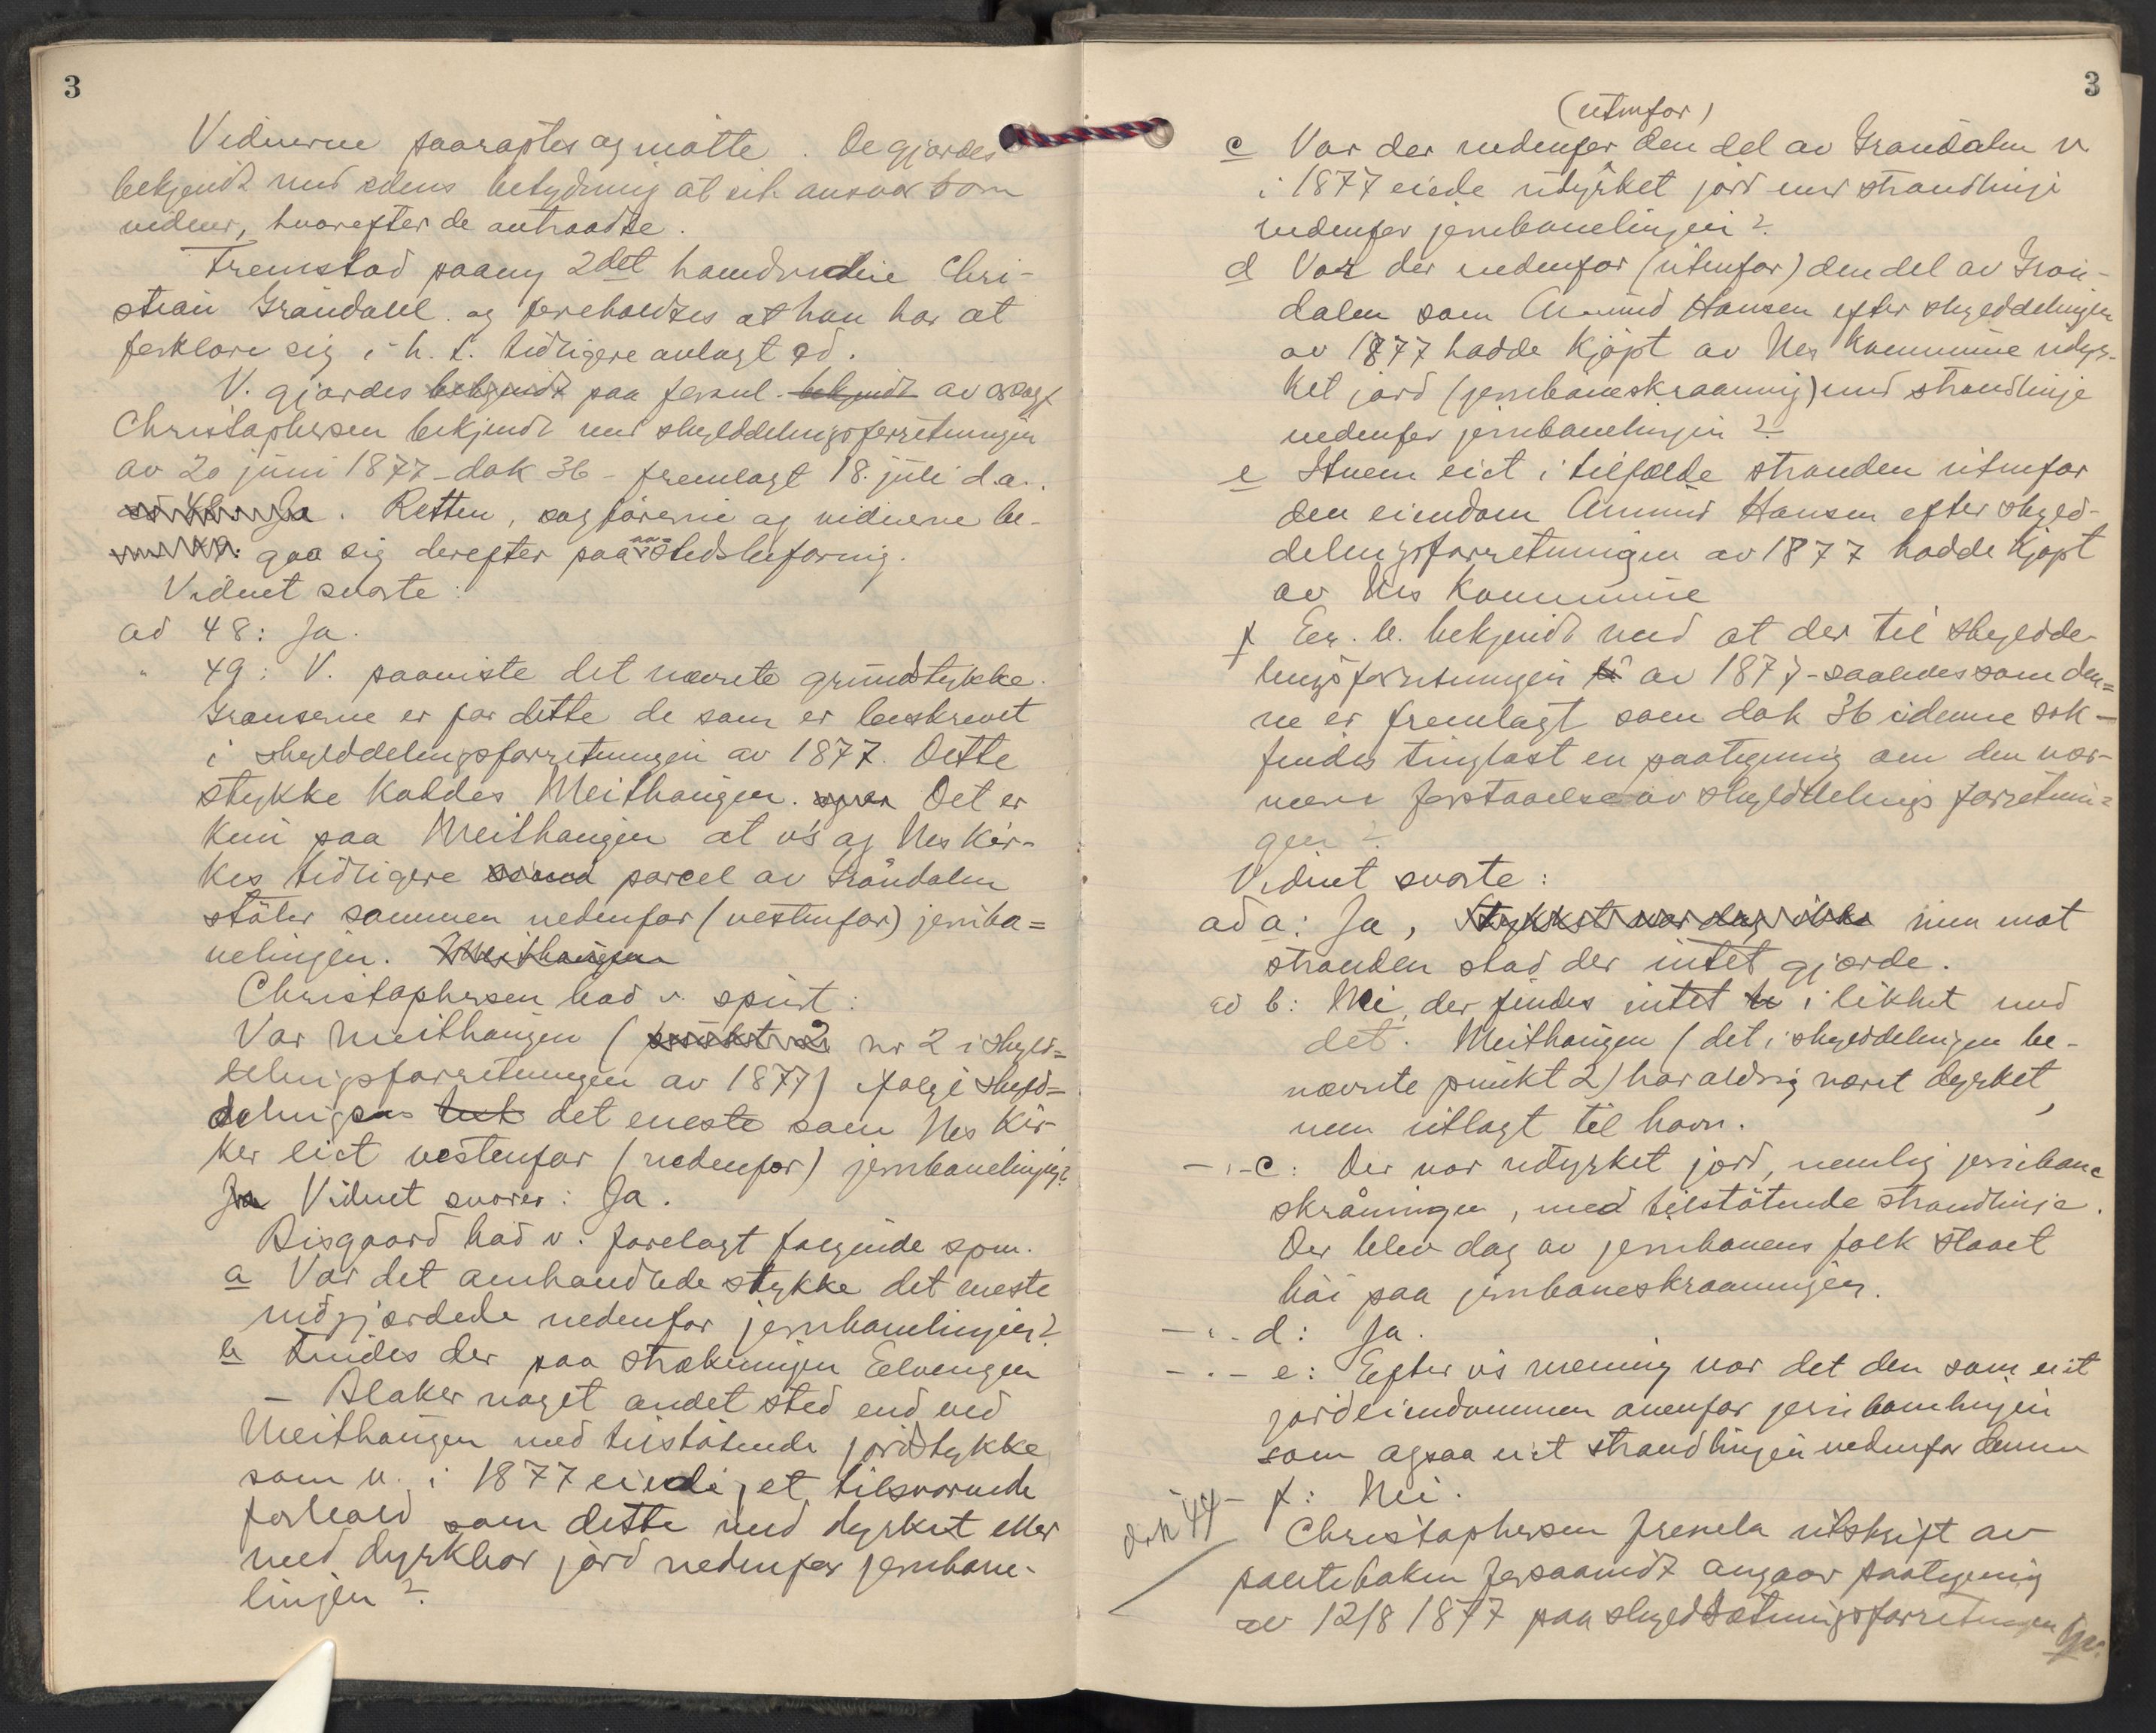 3
Vidnerne paaroptes og møtte. De gjordes
bekjendt med edens betydning at sit ansvar som
vidner, hvorefter de antraadte.
Fremstod paany 2det Chri-
stian Grøndahl og foreholdtes at han har at
forklare sig i h. t. tidligere avlagt ed.
V. gjordes bekjendt paa foranl. bekjendt av
Christophersen bekjendt med skylddelingsforretningen
av 20 juni 1877 - dok 36 - fremlagt 18. juli d.a.
Ja. Retten, sagførerne og vidnerne be-
gav sig derefter paa stedsbefaring.
Vidnet svarte:
ad 48: Ja.
" 49: V. paaviste det nævnte grundstykke.
Grænserne er for dette de som er beskrevet
i skylddelingsforretningen av 1877. Dette
stykke kaldes Meithaugen. Det er
kun paa Meithaugen at v's og Nes Kir-
kes tidligere parcel av Grøndalen
støter sammen nedenfor (vestenfor) jernba=
nelinjen. Meithaugen
Christophersen bad v. spurt:
Var Meithaugen (punkt 2 nr 2 i skyld=
delingsforretningen av 1877) ifølge skyld=
delingen det eneste som Nes Kir-
ker eiet vestenfor (nedenfor) jernbanelinjen?
Ja Vidnet svarer: Ja.
Bisgaard bad v. forelagt følgende spm.
a Var det omhandlede stykke det eneste
indgjærdede nedenfor jernbanelinjen?
b Findes der paa strækningen Eelvengen
- Blaker noget andet sted end ved
Meithaugen med tilstøtende jordstykke
som v. i 1877 eiede, et tilsvarende
forhold som dette med dyrket eller
med dyrkbar jord nedenfor jernbane-
linjen?
3
(utenfor)
c Var der nedenfor den del av Grøndalen v
i 1877 eiede udyrket jord med strandlinje
nedenfor jernbanelinjen?
d Var der nedenfor (utenfor) den del av Grøn-
dalen som Amund Hansen efter skylddelingen
av 1877 hadde kjøpt av Nes Kommune udyr-
ket jord (jernbaneskraaning) med strandlinje
nedenfor jernbanelinjen?
e Hvem eiet i tilfælde stranden utenfor
den eiendom Amund Hansen efter skyld-
delingsforretningen av 1877 hadde kjøpt
av Nes Kommune
f Er v. bekjendt med at der til skyldde-
lingsforretningen av 1877 - saaledes som den=
ne er fremlagt som dok 36 i denne sak -
findes tinglæst en paategning om den nær-
mere forstaaelse av skylddelings forretnin=
gen?
Vidnet svarte:
ad a: Ja, stykket var dog ikke men mot
stranden stod der intet gjærde.
ad b: Nei, der findes intet i likhet med
det. Meithaugen (det i skylddelingen be-
nævnte punkt 2) har aldrig været dyrket,
men utlagt til havn.
- " - c: Der var udyrket jord, nemlig jernbane
skråningen, med tilstøtende strandlinje.
Der blev dog av jernbanens folk slaaet
høi paa jernbaneskraaningen.
- " - d: Ja.
- " - e: Efter v's mening var det den som eiet
jordeiendommen ovenfor jernbanelinjen
som ogsaa eiet strandlinjen nedenfor denne
- f: Nei.
dok 44
Christophersen fremla utskrift av
panteboken forsaavidt angaar paategning
av 12/8 1877 paa skyldsætningsforretningen